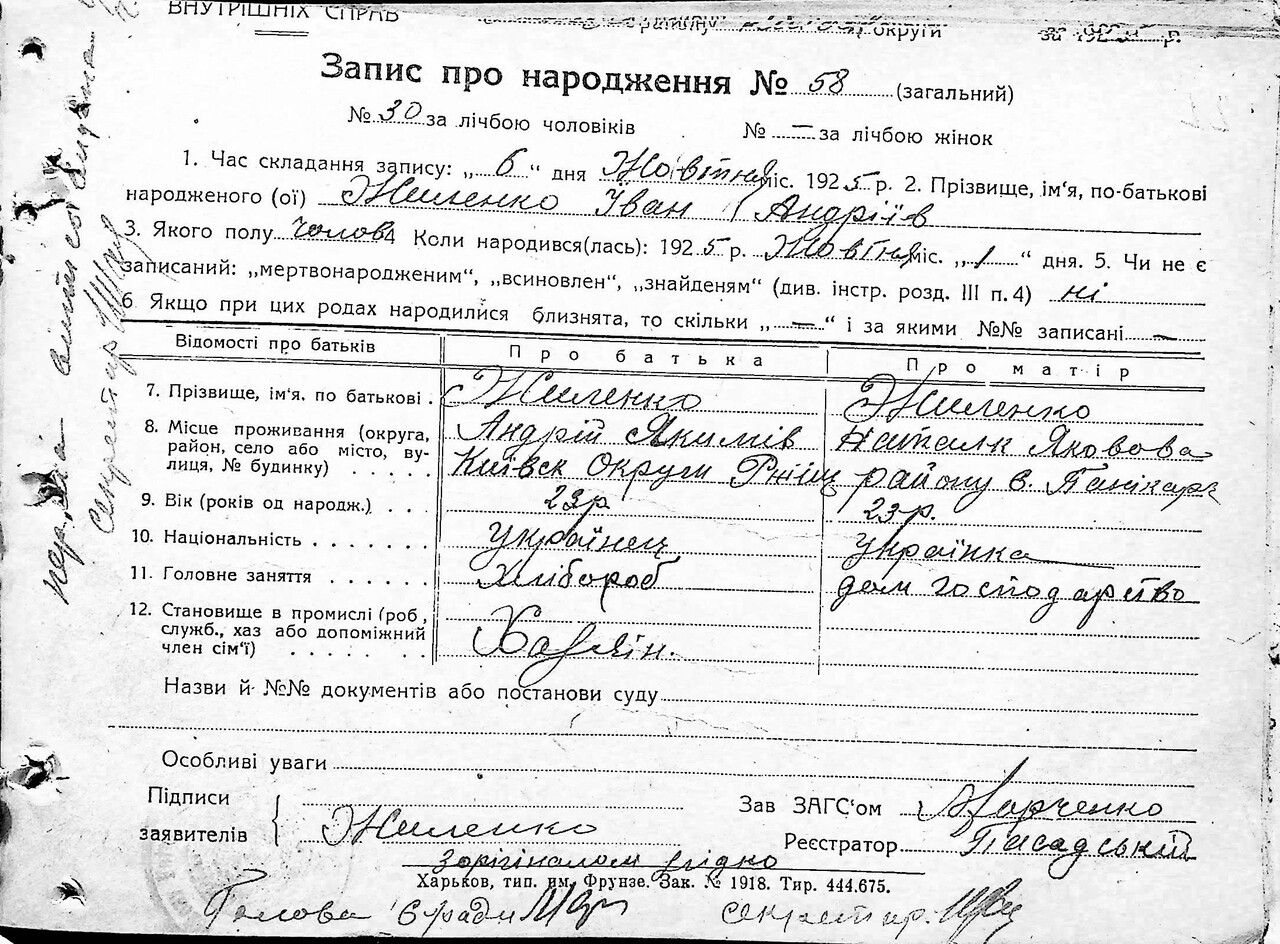 ВНУТРІШНІХ СПРАВ району округи за 192 р.
Запис про народження № 58 (загальний)
№ 30 за лічбою чоловіків № — за лічбою жінок
1. Час складання запису: „ 6 “ дня Жовтня міс. 1925 р. 2. Прізвище, ім'я, по-батькові
народженого (ої) Жиленко Іван Андріїв
3. Якого полу чолов 4 Коли народився(лась): 1925 р. Жовтня міс. „ 1 “ дня. 5. Чи не є
записаний: „мертвонародженим“, „всиновлен“, „знайденям“ (див. інстр. розд. III п. 4) ні
6. Якщо при цих родах народилися близнята, то скільки „ — “ і за якими №№ записані —
Відомості про батьків Про батька Про матір
7. Прізвище, ім'я, по батькові . Жиленко Жиленко
8. Місце проживання (округа, Андрій Якимів Наталк Яковова
район, село або місто, ву-
лиця, № будинку) . . . . Київск Округи Ржищ району с.
9. Вік (років од народж.) . . . 23р. 23р.
10. Національність . . . . . . . Українец Українка
11. Головне заняття . . . . . . Хлібороб дом господарство
12. Становище в промислі (роб.,
служб., хаз або допоміжний
член сім'ї) . . . . . . Хазяін.
Назви й №№ документів або постанови суду
Особливі уваги
Підписи Зав ЗАГС'ом Марченко
заявителів Жиленко Реєстратор Пасадський
Зорігіналом згідно
Харьков, тип. им. Фрунзе. Зак. № 1918. Тир. 444.675.
Голова с ради секретар
Секретар